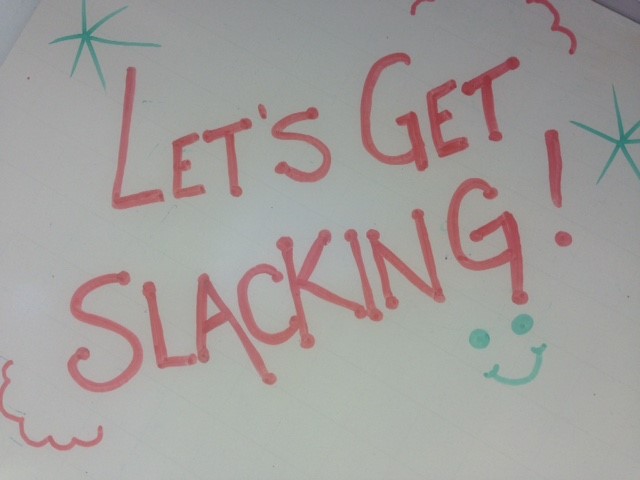 LET'S GET
SLACKING!